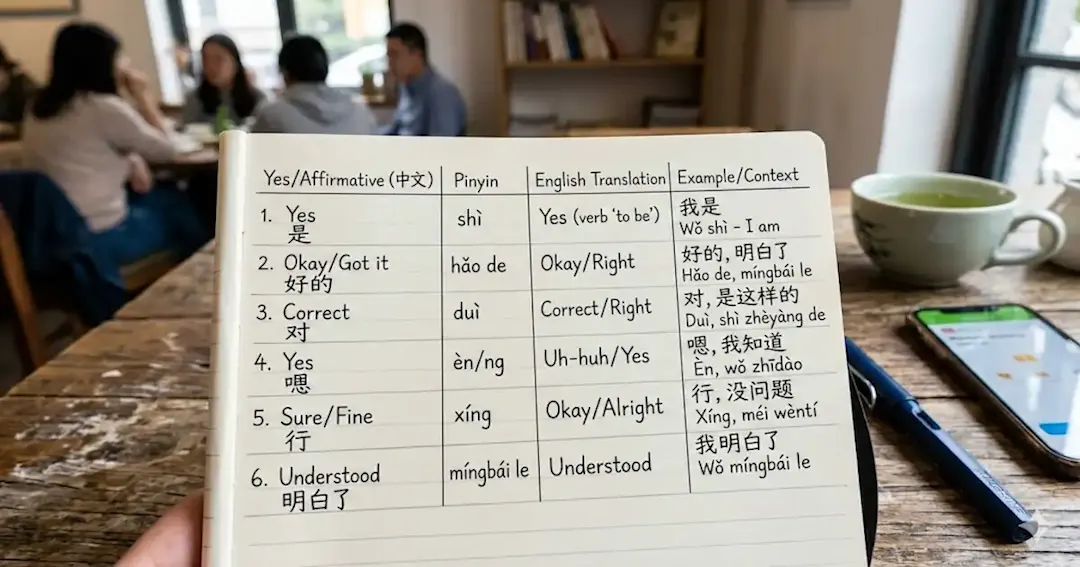 Yes/Affirmative (中文) Pinyin English Translation Example/Context
1. Yes 是 shì Yes (verb 'to be') 我是 Wǒ shì - I am
2. Okay/Got it 好的 hǎo de Okay/Right 好的, 明白了 Hǎo de, míngbái le
3. Correct 对 duì Correct/Right 对, 是这样的 Duì, shì zhèyàng de
4. Yes 嗯 èn/ng Uh-huh/Yes 嗯, 我知道 Èn, wǒ zhīdào
5. Sure/Fine 行 xíng Okay/Alright 行, 没问题 Xíng, méi wèntí
6. Understood 明白了 míngbái le Understood 我明白了 Wǒ míngbái le